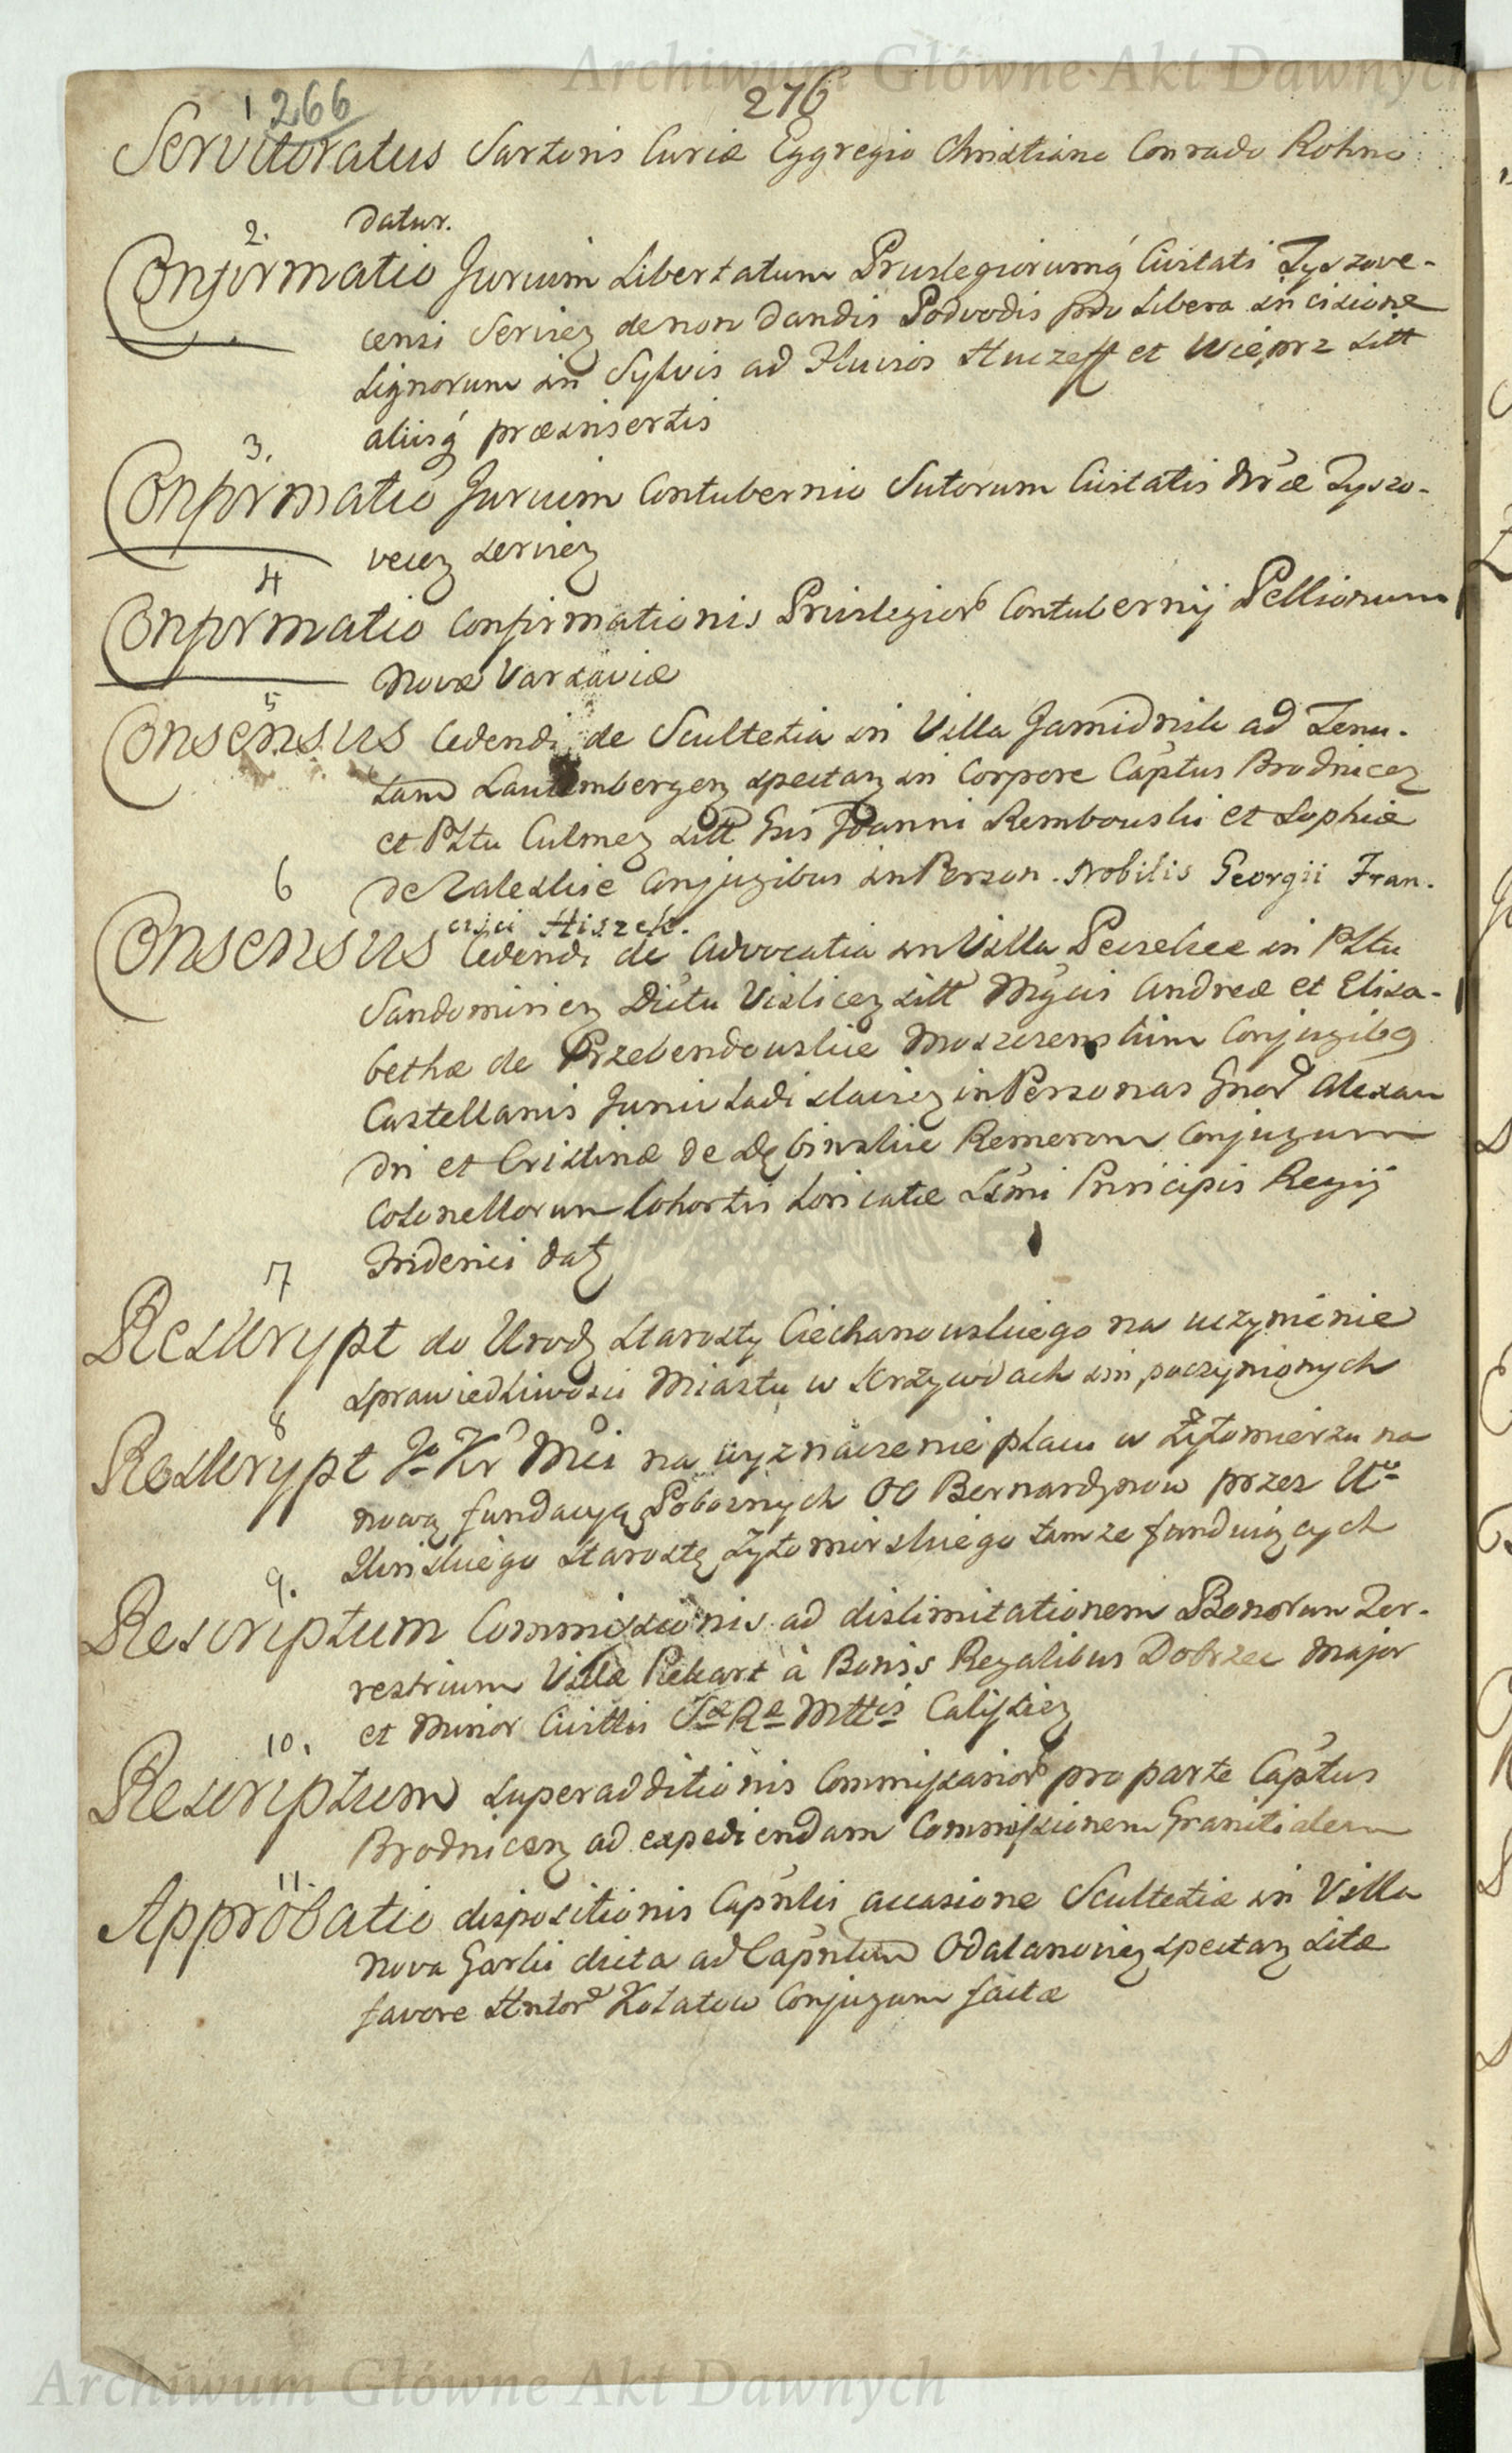 Archiwum Główne Akt Dawnych
266
276
1
Servitoratus Sartoris Curiæ Eggregio Christiano Conrado Rohno
datur.
2.
Confirmatio Jurium Libertatum Privilegiorumq́ Civitati Tyszove-
censi Serviez de non dandis Podvodis pro Libera incisione
Lignorum in Sylvis ad Fluvios Huczeff et Wieprz sitt
aliisq́ præinsertis
3.
Confirmatio Jurium Contubernio Sutorum Civitatis Nr̃æ Tyszo-
viecz serviez
4
Confirmatio Confirmationis Privilegior̃ Contubernij Pellionum
Novæ Varsaviæ
5
Consensus Cedendi de Scultetia in Villa Jamidnik ad Tenu-
tam Lautembergen spectan in Corpore Cap̃tus Brodnicez
et Pltu Culmez sitt Gn̄s Joanni Rembowski et Sophiæ
de Zaleskie Conjugibus in Person. Nobilis Georgii Fran.
cisci Hiszek.
6
Consensus Cedendi de Advocatia in Villa Pciselice in Pltu
Sandomiriez Dic̃tu Visliciez sitt Mg̃cis Andreæ et Elisa-
bethæ de Przebendowskie Moszczenskim Conjugibg
Castellanis Juniuladislaviez in Personas Gnor̃ Alexan
dri et Cristinæ de Dębinskie Remerom Conjugum
Colonellorum Cohortis Loricatæ Ser̃mi Principis Regij
Friderici datz
7
Reskrypt do Urodz Starosty Ciechanowskiego na uczynienie
sprawiedliwosci Miastu w krzywdach im poczynionych
8
Reskrypt Jo Kr̃ Mci na wyznaczenie placu w Żytomierzu na
nową fundacyą Poboznych OO Bernardynow przez Uo
Ilinskiego Starostę Żytomirskiego tamze funduiących
9.
Rescriptum Commissionis ad dislimitationem Bonorum Ter-
restrium Villæ Piekart à Bonis Regalibus Dobrzec Major
et Minor Civittis Sæ Ræ Mttis Calissiez
10.
Rescriptum superadditionis Commissarior̃ pro parte Cap̃tus
Brodnicen ad expediendam Commissionem Granitialem
11.
Approbatio dispositionis Cap̃nlis occasione Scultetiæ in Villa
Nova Garki dicta ad Capnlum Odalanoviez spectan sitæ
favore Hntor̃ Kołatow Conjugum factæ
Archiwum Główne Akt Dawnych